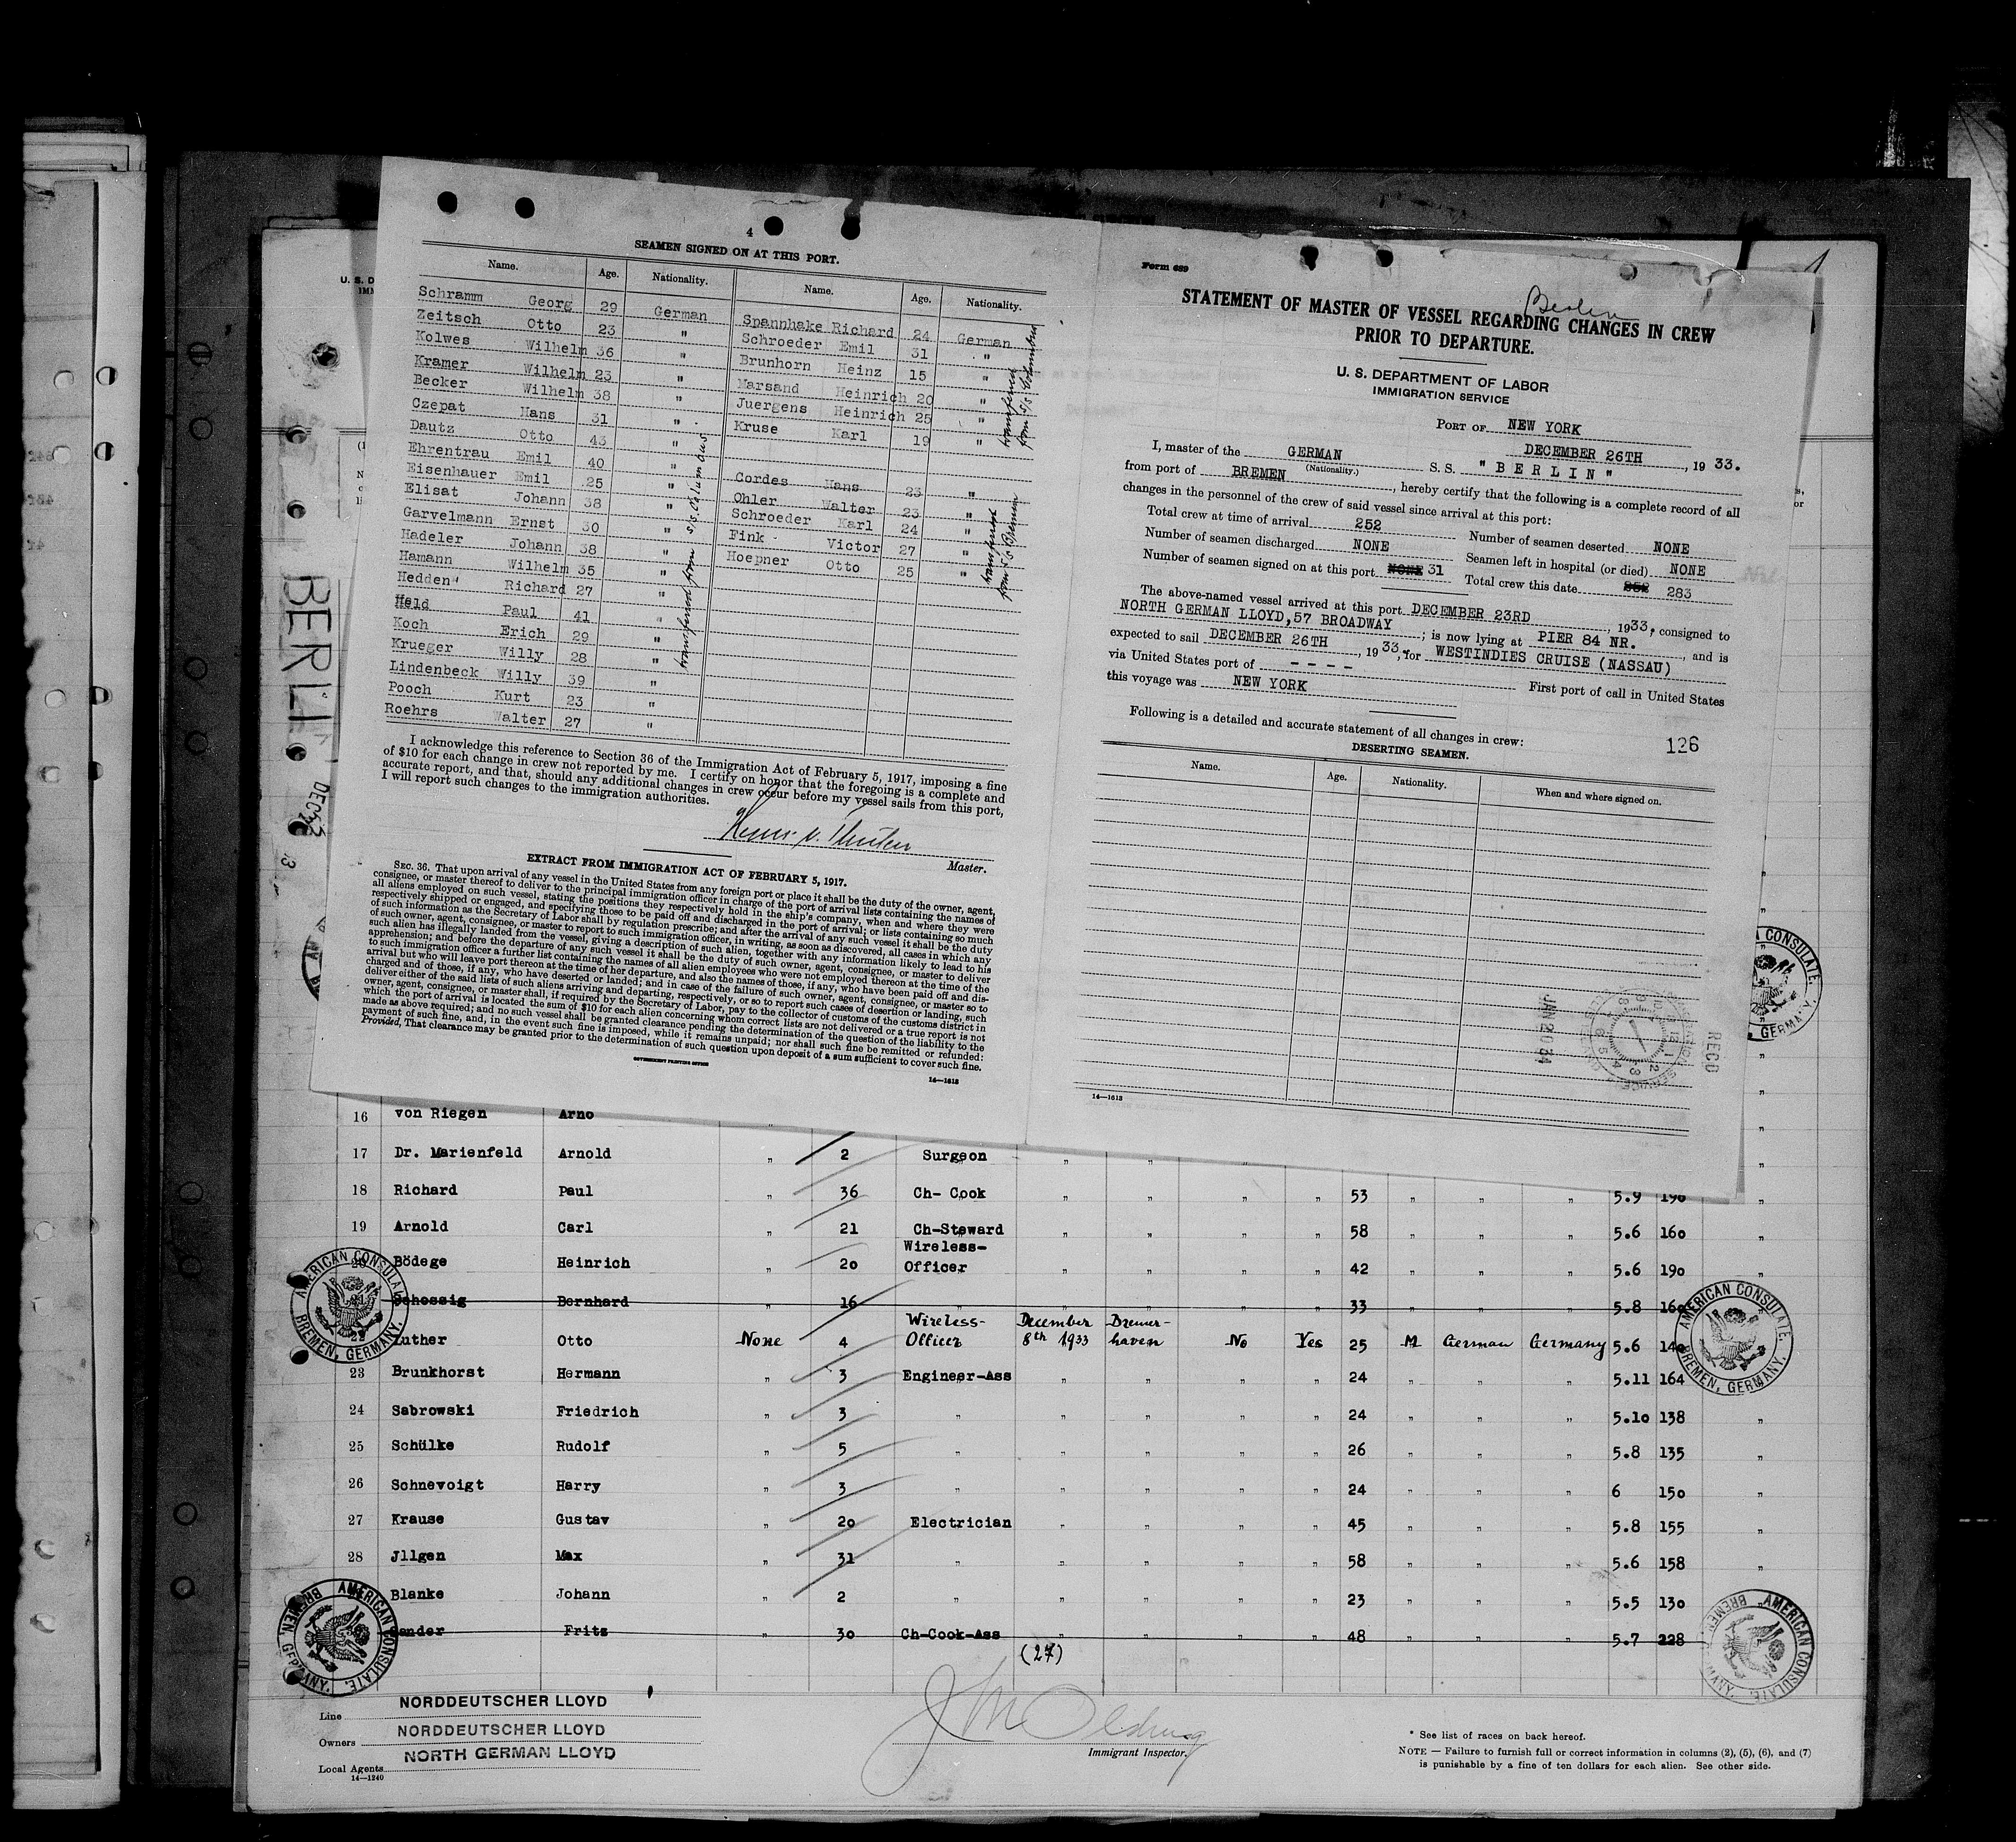 4
SEAMEN SIGNED ON AT THIS PORT.
Name. Age. Nationality. Name. Age. Nationality.
Schramm Georg 29 German
Zeitsch Otto 23 "
Kolwes Wilhelm 36 "
Kramer Wilhelm 23 "
Becker Wilhelm 38 "
Czepat Hans 31 "
Dautz Otto 43 "
Ehrentrau Emil 40 "
Eisenhauer Emil 25 "
Elisat Johann 38 "
Garvelmann Ernst 30 "
Hadeler Johann 38 "
Hamann Wilhelm 35 "
Hedden Richard 27 "
Held Paul 41 "
Koch Erich 29 "
Krueger Willy 28 "
Lindenbeck Willy 39 "
Pooch Kurt 23 "
Roehrs Walter 27 "
transferred from s/s Columbus
Spannhake Richard 24 German
Schroeder Emil 31 "
Brunhorn Heinz 15 "
Marsand Heinrich 20 "
Juergens Heinrich 25 "
Kruse Karl 19 "
transferred
from s/s Columbus
Cordes Hans 23 "
Ohler Walter 23 "
Schroeder Karl 24 "
Fink Victor 27 "
Hoepner Otto 25 "
transferred
from s/s Bremen
I acknowledge this reference to Section 36 of the Immigration Act of February 5, 1917, imposing a fine
of $10 for each change in crew not reported by me. I certify on honor that the foregoing is a complete and
accurate report, and that, should any additional changes in crew occur before my vessel sails from this port,
I will report such changes to the immigration authorities.
Master.
EXTRACT FROM IMMIGRATION ACT OF FEBRUARY 5, 1917.
SEC. 36. That upon arrival of any vessel in the United States from any foreign port or place it shall be the duty of the owner, agent,
consignee, or master thereof to deliver to the principal immigration officer in charge of the port of arrival lists containing the names of
all aliens employed on such vessel, stating the positions they respectively hold in the ship's company, when and where they were
respectively shipped or engaged, and specifying those to be paid off and discharged in the port of arrival; or lists containing so much
of such information as the Secretary of Labor shall by regulation prescribe; and after the arrival of any such vessel it shall be the duty
of such owner, agent, consignee, or master to report to such immigration officer, in writing, as soon as discovered, all cases in which any
such alien has illegally landed from the vessel, giving a description of such alien, together with any information likely to lead to his
apprehension; and before the departure of any such vessel it shall be the duty of such owner, agent, consignee, or master to deliver
to such immigration officer a further list containing the names of all alien employees who were not employed thereon at the time of the
arrival but who will leave port thereon at the time of her departure, and also the names of those, if any, who have been paid off and dis-
charged and of those, if any, who have deserted or landed; and in case of the failure of such owner, agent, consignee, or master so to
deliver either of the said lists of such aliens arriving and departing, respectively, or so to report such cases of desertion or landing, such
owner, agent, consignee, or master shall, if required by the Secretary of Labor, pay to the collector of customs of the customs district in
which the port of arrival is located the sum of $10 for each alien concerning whom correct lists are not delivered or a true report is not
made as above required; and no such vessel shall be granted clearance pending the determination of the question of the liability to the
payment of such fine, and, in the event such fine is imposed, while it remains unpaid; nor shall such fine be remitted or refunded:
Provided, That clearance may be granted prior to the determination of such question upon deposit of a sum sufficient to cover such fine.
GOVERNMENT PRINTING OFFICE
14—1613
Form 689
Berlin
STATEMENT OF MASTER OF VESSEL REGARDING CHANGES IN CREW
PRIOR TO DEPARTURE.
U. S. DEPARTMENT OF LABOR
IMMIGRATION SERVICE
PORT OF NEW YORK
DECEMBER 26TH, 1933.
I, master of the GERMAN S. S. "BERLIN"
(Nationality.)
from port of BREMEN, hereby certify that the following is a complete record of all
changes in the personnel of the crew of said vessel since arrival at this port:
Total crew at time of arrival 252
Number of seamen deserted NONE
Number of seamen discharged NONE
Seamen left in hospital (or died) NONE
Number of seamen signed on at this port NONE 31
Total crew this date 252 283
The above-named vessel arrived at this port DECEMBER 23RD, 1933, consigned to
NORTH GERMAN LLOYD, 57 BROADWAY; is now lying at PIER 84 NR., and is
expected to sail DECEMBER 26TH, 1933, for WESTINDIES CRUISE (NASSAU)
via United States port of - - - - First port of call in United States
this voyage was NEW YORK
Following is a detailed and accurate statement of all changes in crew:
126
DESERTING SEAMEN.
Name. Age. Nationality. When and where signed on.
JAN 20 34
RECD
14—1613
U. S. D
IMM
BERLIN
DEC 23
16 von Riegen Arno
17 Dr. Marienfeld Arnold " 2 Surgeon " "
18 Richard Paul " 36 Ch- Cook " " " " 53 " " " 5.9 190
19 Arnold Carl " 21 Ch-Steward " " " " 58 " " " 5.6 160 "
20 Bödege Heinrich " 20 Wireless-Officer " " " " 42 " " " 5.6 190 "
21 Schossig Bernhard " 16 " " " " " 33 " " " 5.8 160 "
22 Luther Otto None 4 Wireless-Officer December 8th 1933 Bremer-haven No Yes 25 M German Germany 5.6 140
23 Brunkhorst Hermann " 3 Engineer-Ass " " " " 24 " " " 5.11 164
24 Sabrowski Friedrich " 3 " " " " " 24 " " " 5.10 138 "
25 Schülke Rudolf " 5 " " " " " 26 " " " 5.8 135 "
26 Schnevoigt Harry " 3 " " " " " 24 " " " 6 150 "
27 Krause Gustav " 20 Electrician " " " " 45 " " " 5.8 155 "
28 Jllgen Max " 31 " " " " " 58 " " " 5.6 158 "
Blanke Johann " 2 " " " " " 23 " " " 5.5 130 "
Sander Fritz " 30 Ch-Cook-Ass " " " " 48 " " " 5.7 228
(27)
AMERICAN CONSULATE.
BREMEN, GERMANY.
AMERICAN CONSULATE.
BREMEN, GERMANY.
AMERICAN CONSULATE.
BREMEN, GERMANY.
AMERICAN CONSULATE.
BREMEN, GERMANY.
CONSULATE.
GERMANY.
Line NORDDEUTSCHER LLOYD
Owners NORDDEUTSCHER LLOYD
Local Agents NORTH GERMAN LLOYD
14—1240
Immigrant Inspector.
* See list of races on back hereof.
NOTE — Failure to furnish full or correct information in columns (2), (5), (6), and (7)
is punishable by a fine of ten dollars for each alien. See other side.